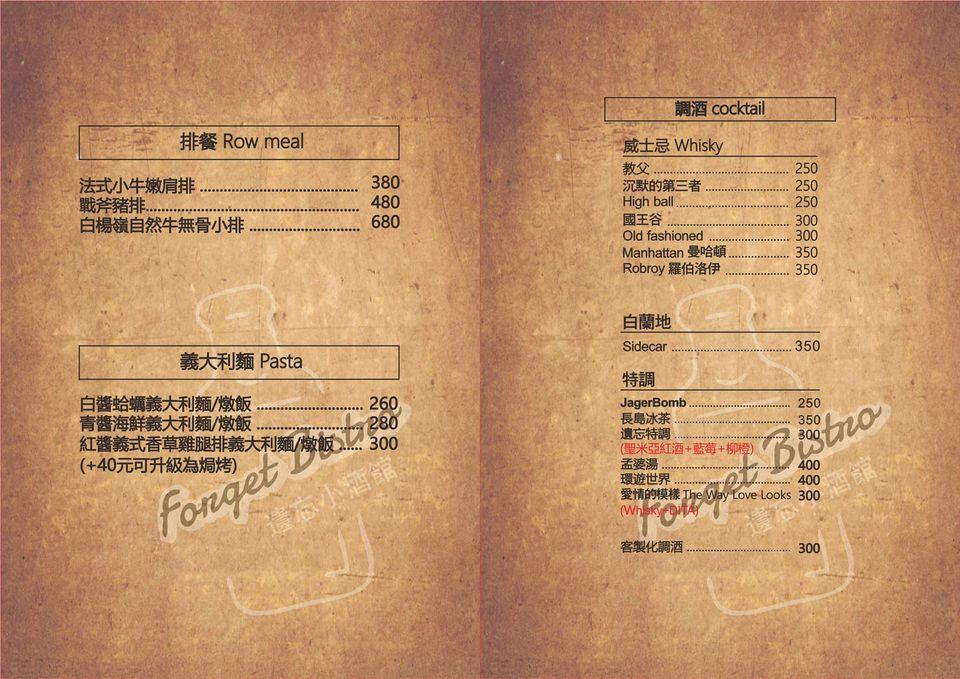 排餐 Row meal
法式小牛嫩肩排 ................................ 380
戰斧豬排............................................ 480
白楊嶺自然牛無骨小排 ....................... 680
義大利麵 Pasta
白醬蛤蠣義大利麵/燉飯 ....................... 260
青醬海鮮義大利麵/燉飯 ....................... 280
紅醬義式香草雞腿排義大利麵/燉飯 ...... 300
(+40元可升級為焗烤)
Forget Bistro
遺忘小酒館
調酒 cocktail
威士忌 Whisky
教父 .................................. 250
沉默的第三者 ..................... 250
High ball ............................ 250
國王谷 ............................... 300
Old fashioned .................... 300
Manhattan 曼哈頓 ............... 350
Robroy 羅伯洛伊 ................ 350
白蘭地
Sidecar .............................. 350
特調
JagerBomb ......................... 250
長島冰茶 ............................. 350
遺忘特調 ............................. 300
(聖米亞紅酒+藍莓+柳橙)
孟婆湯 ................................ 400
環遊世界 ............................. 400
愛情的模樣 The Way Love Looks 300
(Whisky+DITA)
客製化調酒 .......................... 300
Forget Bistro
遺忘小酒館